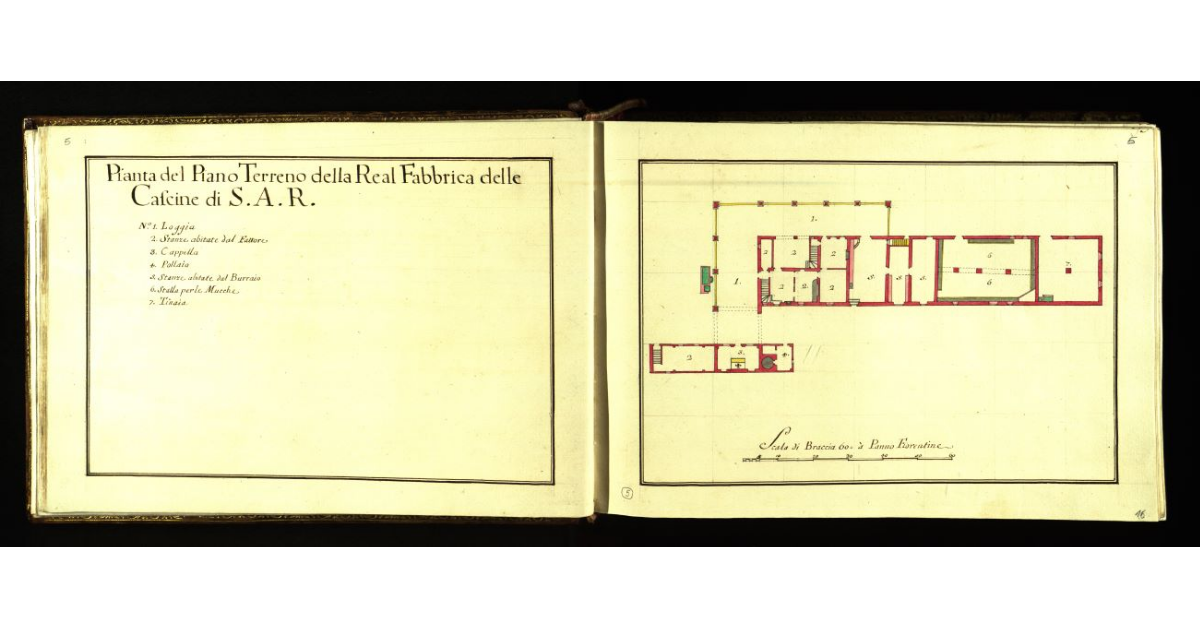 5
Pianta del Piano Terreno della Real Fabbrica delle
Cascine di S.A.R.
N.º 1. Loggia
2. Stanze abitate dal Fattore
3. Cappella
4. Pollaio
5. Stanze abitate del Burraio
6. Stalla per le Mucche
7. Tinaia
5
1.
2 2 2
5 5 5
6
7.
1.
2 2 2
6
2 3. 4
Scala di Braccia 60. à Panno Fiorentine
5
46